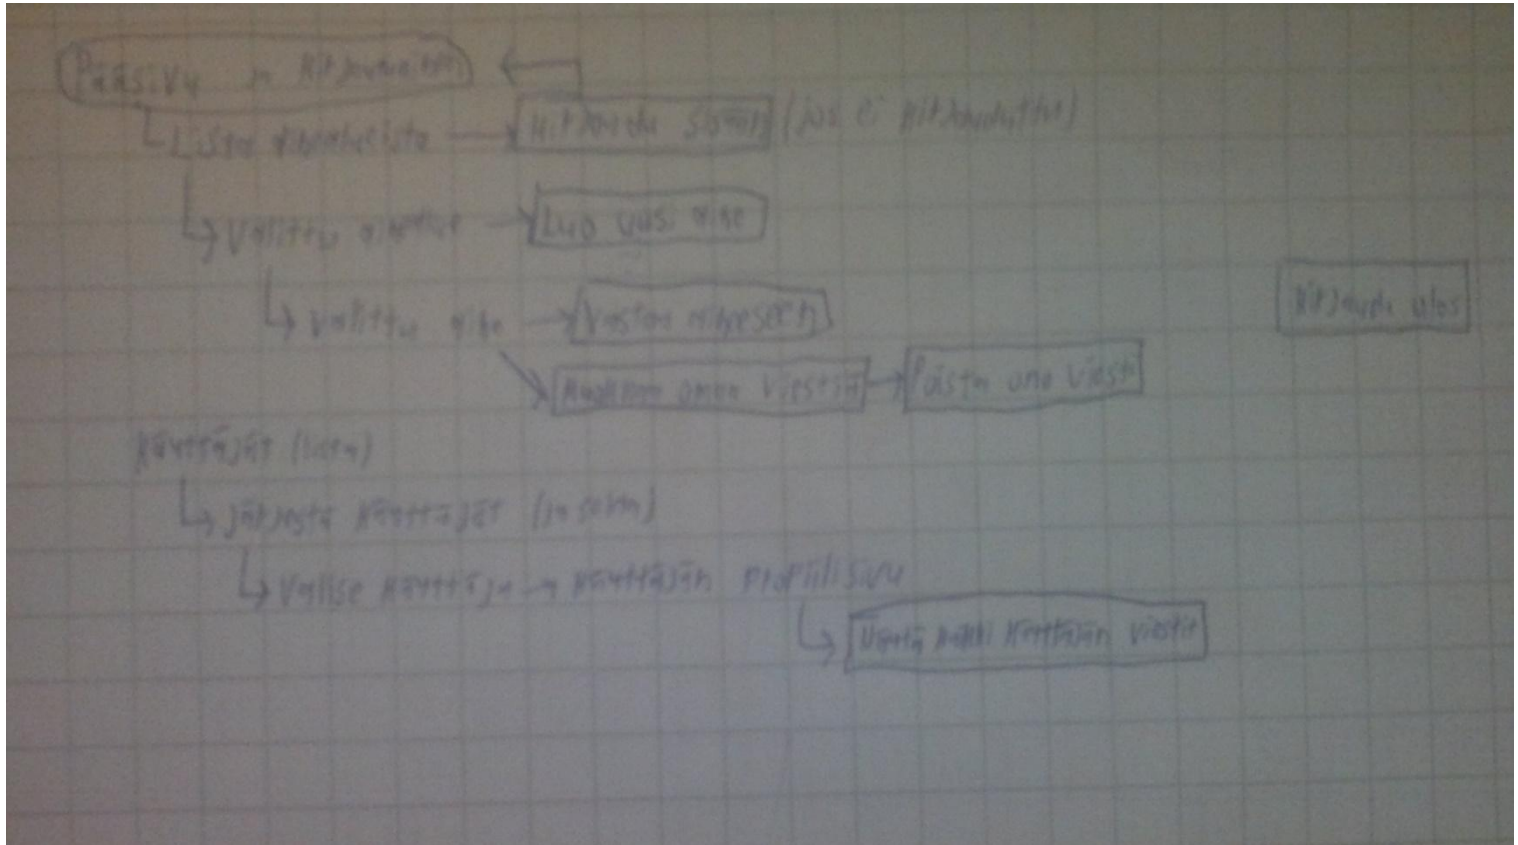 Pääsivu ja kirjautuminen
Lista aihealueista Kirjaudu sisään (jos ei kirjauduttu)
Valittu aihealue Luo uusi aihe
Valittu aihe Vastaa aiheeseen
Muokkaa omaa viestiä Poista oma viesti
Kirjaudu ulos
Käyttäjät (lista)
Järjestä käyttäjät (ja selaa)
Valitse käyttäjä Käyttäjän profiilisivu
Näytä kaikki käyttäjän viestit